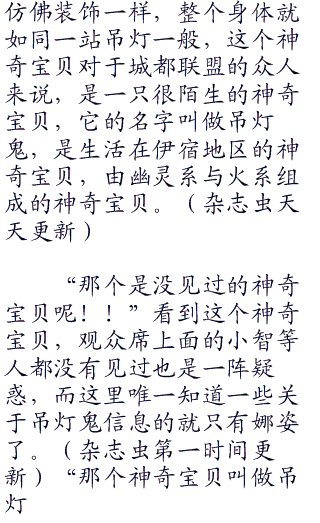 仿佛装饰一样，整个身体就
如同一站吊灯一般，这个神
奇宝贝对于城都联盟的众人
来说，是一只很陌生的神奇
宝贝，它的名字叫做吊灯
鬼，是生活在伊宿地区的神
奇宝贝，由幽灵系与火系组
成的神奇宝贝。（杂志虫天
天更新）
“那个是没见过的神奇
宝贝呢！！”看到这个神奇
宝贝，观众席上面的小智等
人都没有见过也是一阵疑
惑，而这里唯一知道一些关
于吊灯鬼信息的就只有娜姿
了。（杂志虫第一时间更
新）“那个神奇宝贝叫做吊
灯